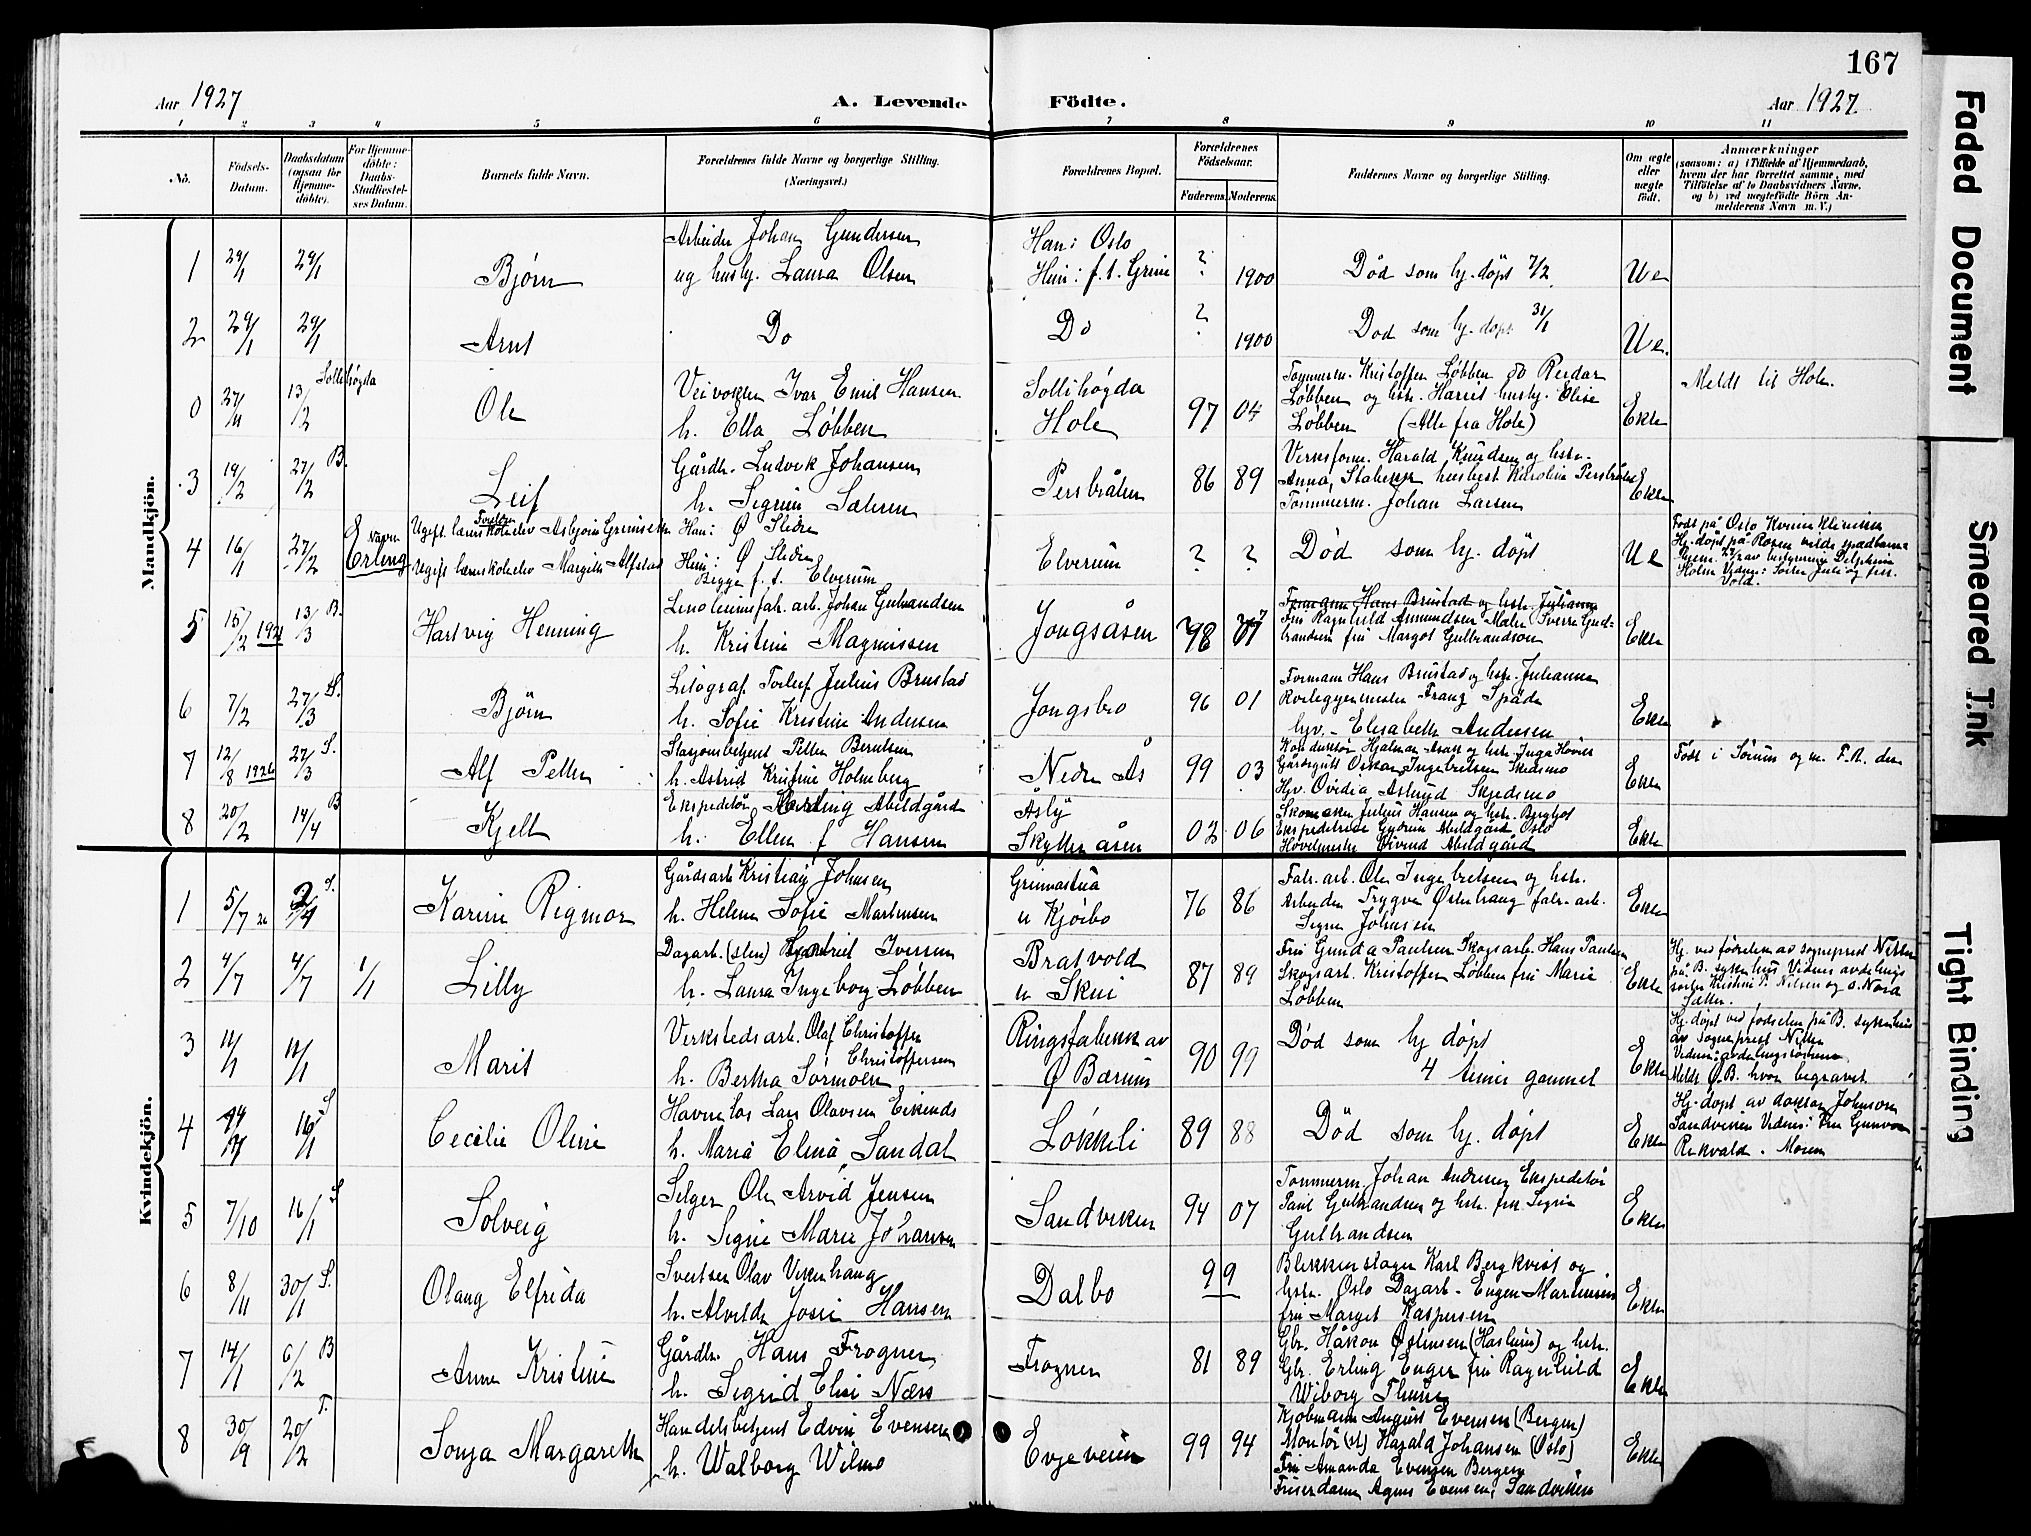 167
Aar 1927
A. Levende Födte.
Aar 1927.
1 2 3 4 5 6 7 8 9 10 11
No.
Födsels-
Datum.
Daabsdatum
(ogsaa for
Hjemme-
döbte).
For Hjemme-
döbte:
Daabs-
Stadfæstel-
ses Datum.
Barnets fulde Navn.
Forældrenes fulde Navne og borgerlige Stilling.
(Næringsvei.)
Forældrenes Bopæl.
Forældrenes
Födselsaar.
Faderens. Moderens.
Faddernes Navne og borgerlige Stilling.
Om ægte
eller
uægte
födt.
Anmærkninger
(saasom: a) i Tilfælde af Hjemmedaab,
hvem der har forrettet samme, med
Tilföielse af to Daabsvidners Navne,
og b) ved uægtefödte Börn An-
melderens Navn m. V.)
Mandkjön.
1 29/1 29/1 Bjørn
Arbeider Johan Gundersen
ug husby. Laura Olsen
Han: Oslo
Hun: f.t. Grini
? 1900
Død som hj. døpt 7/2.
Ue
2 29/1 29/1 Arnt
Do
Do
? 1900
Død som hj. døpt 31/1
Ue.
0 27/11 13/2 Sollihøgda
Ole
Veivokter Ivar Emil Hansen
h. Ella Løbben
Sollihøgda
Hole
97 04
Tømmerm. Kristoffer Løbben do Reidar
Løbben og hstr. Harriet husby. Elise
Løbben (Alle fra Hole)
Ekte
Meldt til Hole.
3 19/2 27/2 B.
Leif
Gårdbr. Ludvik Johansen
h. Sigrun Sætren
Persbråten
86 89
Verksform. Harald Knudsen og hstr.
Anna, Stabekk husbest Karoline Persbråten
Tømmerm. Johan Larsen
Ekte
4 16/1 27/2
Navn
Erling
Ugift lærerskoleelev Asbjørn Grimseth
Ugift lærerskoleelev Margith Alfstad
Han: Ø Slidre
Hun: Ø Slidre
Begge f. t. Elverum
Elverum
? ?
Død som hj. døpt
Ue
Født på Oslo Kvinneklinikk
5 15/2 1921 13/3 B.
Hartvig Henning
Linoleumsfabr. arb. Johan Gulbrandsen
h. Kristine Magnussen
Jongsåsen
98
Formann Hans Brustad og hstr. Julianne
Fru Ragnhild Amundsen Maler Sverre Gul-
brandsen fru Margot Gulbrandsen
Ekte
6 7/2 27/3 S.
Bjørn
Litograf Torleif Julius Brustad
h. Sofie Kristine Andersen
Jongsbro
96 01
Formann Hans Brustad og hstr. Julianne
Rørleggermester Franz Späde
hgv. Elisabeth Andersen
Ekte
7 12/8 1926 27/3 S.
Alf Petter
Stasjonsbetjent Petter Berntsen
h. Astrid Kristine Holmberg
Nedre Ås
99 03
Gårdsgutt Oskar Ingebretsen Skedsmo
Hgv. Ovidia Astrid Skjedsmo
Ekte
Født i Sørum og m. F. R. der
8 20/2 14/4 B
Kjell
Ekspeditør Erling Abildgård
h. Ellen f Hansen
Åsly
Skytteråsen
02 06
Skomaker Julius Hansen og hstr. Bergljot
Ekspeditrise Gudrun Abildgård Oslo
Høvlemester Øivind Abildgård
Ekte
Kvindekjön.
1 5/7 26
Karin Rigmor
Gårdsarb Kristian Johnsen
h. Helene Sofie Martinsen
Grimastua
u Kjørbo
76 86
Fabr. arb. Ole Ingebretsen og hstr.
Arbeider Trygve Østerhaug fabr. arb.
Signe Johnsen
Ekte
2 4/7 4/7 1/1
Lilly
Iversen
h. Laura Ingeborg Løbben
Bratvold
u Skui
87 89
Fru Gunda Paulsen Skogsarb. Hans Paulsen
Skogsarb. Kristoffer Løbben fru Marie
Løbben
Ekte
Hj. ved fødselen av sogneprest Nissen
på B. sykehus Vidner avdelings
søster Kristine T. Nilsen og s. Nora
Sæther.
3 11/1 11/1
Marit
Verkstedsarb. Olaf Christoffer
Christoffersen
h. Bertha Sørmoen
Ringstabekk av
Ø Bærum
90 99
Død som hj døpt
4 timer gammel
Ekte
Hj. døpt ved fødselen på B. sykehus
av Sogneprest Nissen
Meldt Ø. B. hvor begravet.
4 16/1 S
Cecilie Oline
Havnelos Lars Olavsen Eikends
h. Maria Elina Sandal
Løkkeli
89 88
Død som hj. døpt
Ekte
Hj. døpt av doktor Johnson
Sandviken Vidner: Fru Gunvor
Rekvald. Moren
5 7/10 16/1 S
Solveig
Selger Ole Arvid Jensen
h. Signe Marie Johansen
Sandviken
94 07
Tømmerm. Johan Andresen Ekspeditør
Paul Gulbrandsen og hstr. fru Signe
Gulbrandsen
Ekte
6 8/11 30/1 S.
Olaug Elfrida
Sveiser Olav Vikenhaug
h. Alvilde Josie Hansen
Dalbo
99
Blikkenslager Karl Bergkvist og
hstr. Oslo Dagarb. Eugen Martinsen
fru Marget Kaspersen
Ekte
7 14/1 6/2 B
Anne Kristine
Gårdbr. Hans Frogner
h. Sigrid Elise Næss
Frogner
81 89
Gbr. Håkon Østensen (Haslum) og hstr.
Gbr. Erling Enger fru Ragnhild
Wiborg Thune
Ekte
8 30/9 20/2 T.
Sonja Margareth
Handelsbetjent Edvin Evensen
h. Walborg Wilmo
Evjeveien
99 94
Kjøbmann August Evensen (Bergen)
Montør (st) Harald Johansen (Oslo)
Fru Amanda Evensen Bergen
Friserdame Agnes Evensen, Sandviken
Ekte
Faded Document
Smeared Ink
Tight Binding